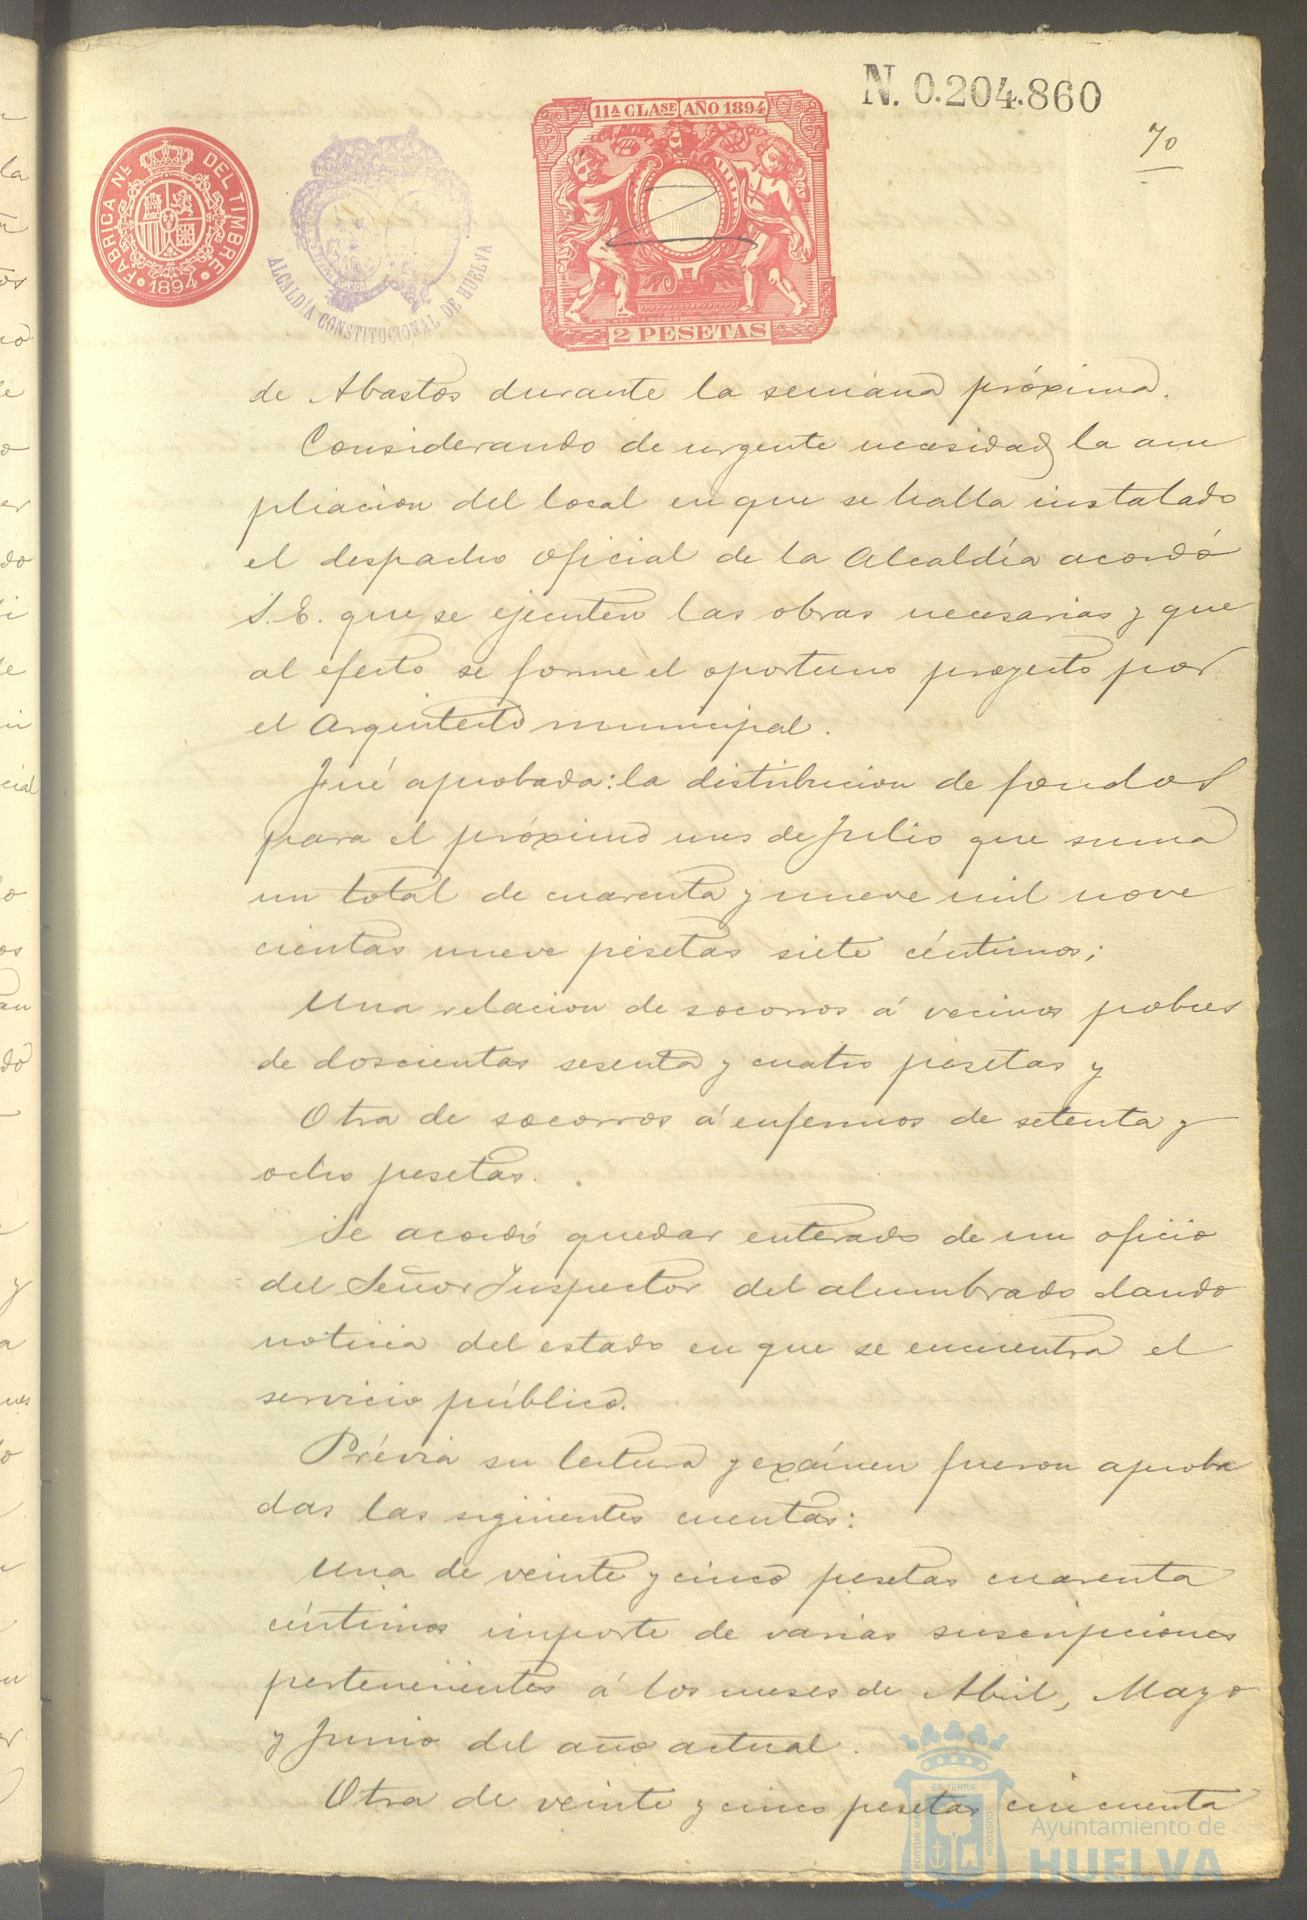 N. 0.204.860
70
11ª CLASE AÑO 1894
FABRICA Nª DEL TIMBRE
1894
ALCALDÍA CONSTITUCIONAL DE HUELVA
2 PESETAS
de Abastos durante la semana próxima.
Considerando de urgente necesidad la am
pliacion del local en que se halla instalado
el despacho oficial de la Alcaldía acordó
S. E. que se ejecuten las obras necesarias y que
al efecto se forme el oportuno proyecto por
el Arquitecto municipal.
Fué aprobada: la distribucion de fondos
para el próximo mes de Julio que suma
un total de cuarenta y nueve mil nove
cientas nueve pesetas siete céntimos;
Una relacion de socorros á vecinos pobres
de doscientas sesenta y cuatro pesetas y
Otra de socorros á enfermos de setenta y
ocho pesetas.
Se acordó quedar enterado de un oficio
del Señor Inspector del alumbrado dando
noticia del estado en que se encuentra el
servicio público.
Prévia su lectura y exámen fueron aproba
das las siguientes cuentas:
Una de veinte y cinco pesetas cuarenta
céntimos importe de varias suscripciones
pertenecientes á los meses de Abril, Mayo
y Junio del año actual.
Otra de veinte y cinco pesetas cincuenta
Ayuntamiento de
HUELVA